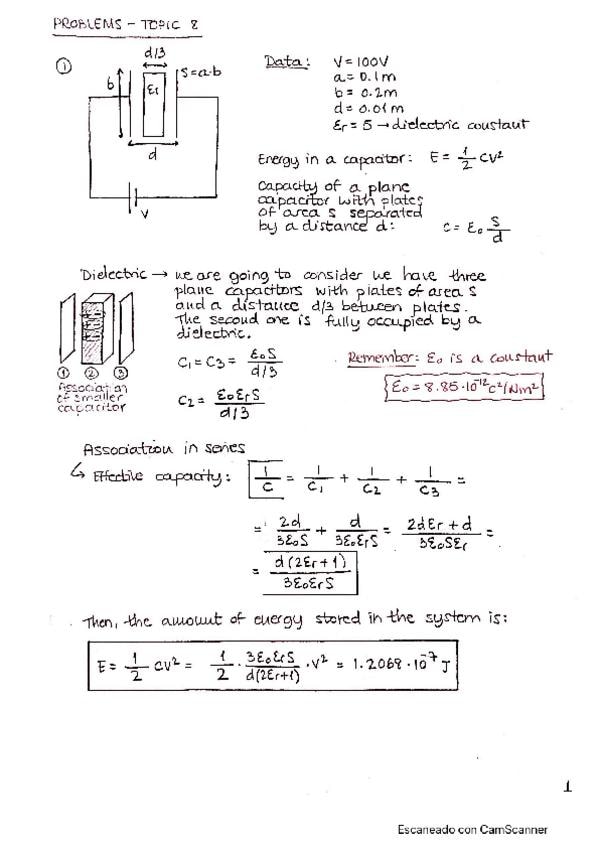 PROBLEMS - TOPIC 8
① d/3 S=a·b b Er d V
Data: V = 100V
a = 0.1m
b = 0.2m
d = 0.01m
Er = 5 → dielectric constant
Energy in a capacitor: E = 1/2 CV²
Capacity of a plane
capacitor with plates
of area S separated
by a distance d: C = ε₀ S/d
Dielectric → we are going to consider we have three
plane capacitors with plates of area S
and a distance d/3 between plates.
The second one is fully occupied by a
dielectric.
① ② ③
Association
of smaller
capacitor
C₁ = C₃ = ε₀S / d/3
Remember: ε₀ is a constant
ε₀ = 8.85·10⁻¹² C²/Nm²
C₂ = ε₀εrS / d/3
Association in series
↳ Effective capacity: 1/C = 1/C₁ + 1/C₂ + 1/C₃ =
= 2d/3ε₀S + d/3ε₀εrS = 2dεr + d / 3ε₀Sεr =
= d(2εr+1) / 3ε₀εrS
Then, the amount of energy stored in the system is:
E = 1/2 CV² = 1/2 · 3ε₀εrS / d(2εr+1) · V² = 1.2068·10⁻⁷ J
1
Escaneado con CamScanner